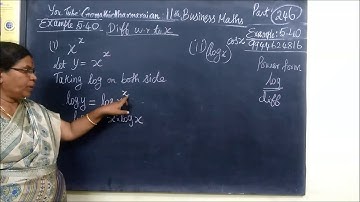 You Tube: Gomathir Dharmarajan 11th Business Maths Part 246
Example 5.40 Diff w.r. to x
(i) x^x
Let y = x^x
Taking log on both side
log y = log x
x. log x
(ii) (log x)^cos x
Example: 5.40
9944624816
Power form
log
diff